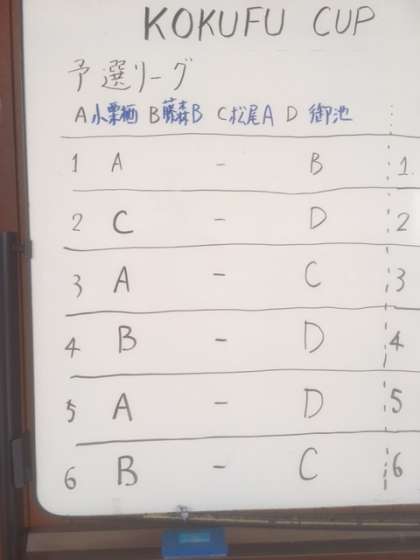 KOKUFU CUP
予選リーグ
A小栗栖 B藤森B C松尾A D 御池
1 A - B 1.
2 C - D 2
3 A - C 3
4 B - D 4
5 A - D 5
6 B - C 6